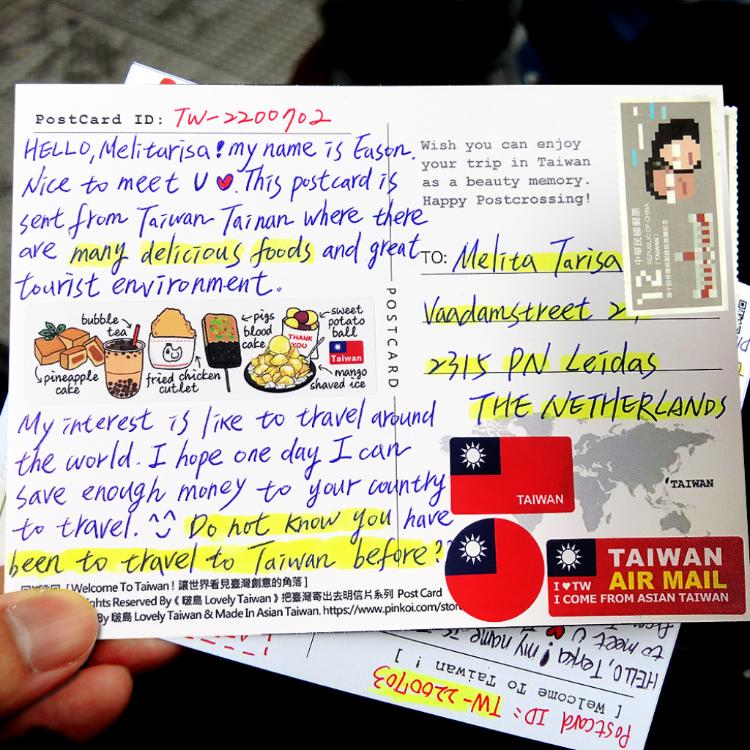 PostCard ID: TW-2200702
HELLO, Melitarisa! my name is Eason.
Nice to meet U ♥. This postcard is
sent from Taiwan Tainan where there
are many delicious foods and great
tourist environment.
bubble tea
pigs blood cake
sweet potato ball
THANK YOU
TAIWAN
pineapple cake
fried chicken cutlet
mango shaved ice
My interest is like to travel around
the world. I hope one day I can
save enough money to your country
to travel. ^^ Do not know you have
been to travel to Taiwan before??
[ Welcome To Taiwan ! 讓世界看見臺灣創意的角落 ]
Rights Reserved By《 啵島 Lovely Taiwan 》把臺灣寄出去明信片系列 Post Card
By 啵島 Lovely Taiwan & Made In Asian Taiwan. https://www.pinkoi.com/stor
POSTCARD
Wish you can enjoy
your trip in Taiwan
as a beauty memory.
Happy Postcrossing!
12
中華民國郵票
REPUBLIC OF CHINA
(TAIWAN)
TO: Melita Tarisa
Vaadamstreet
2315 PN Leidas
THE NETHERLANDS
TAIWAN
'TAIWAN
TAIWAN
AIR MAIL
I ♥ TW
I COME FROM ASIAN TAIWAN
HELLO, Terka! my name is
to meet U
[ Welcome To Taiwan !
Postcard ID: TW-2200703